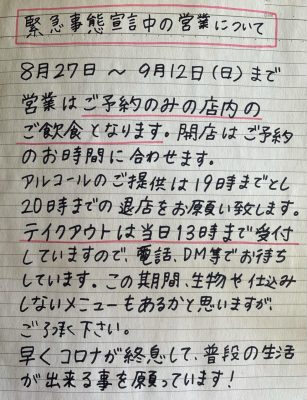 緊急事態宣言中の営業について
8月27日 〜 9月12日(日)まで
営業はご予約のみの店内の
ご飲食となります。開店はご予約
のお時間に合わせます。
アルコールのご提供は19時までとし
20時までの退店をお願い致します。
テイクアウトは当日13時まで受付
していますので、電話、DM等でお待ち
しています。この期間、生物や仕込み
しないメニューもあるかと思いますが、
ご了承下さい。
早くコロナが終息して、普段の生活
が出来る事を願っています!